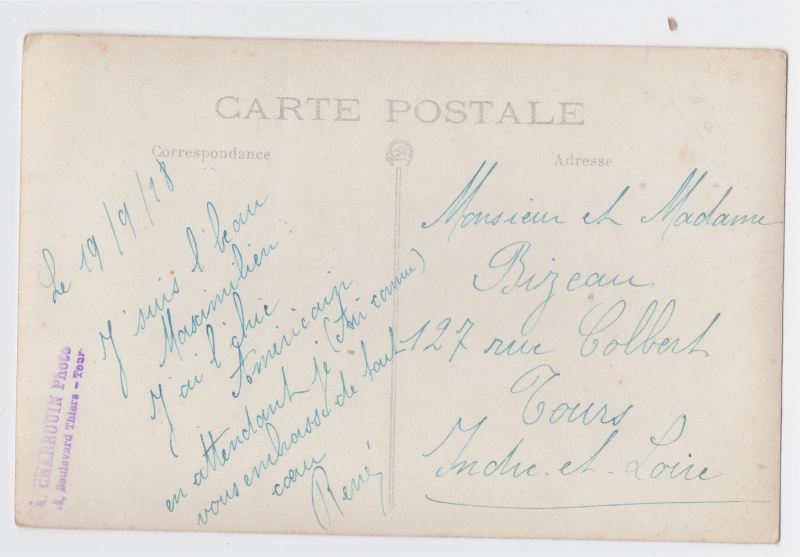 CARTE POSTALE
Correspondance
Adresse
Le 19/9/18
J'suis l'beau
Maximilien.
J'ai l'chic
Américain
(Air connu)
en attendant je
vous embrasse de tout
cœur
René
Monsieur et Madame
Bizeau
127 rue Colbert
Tours
Indre-et-Loire
A. CHARROUIN PHOTO
Boulevard Thiers - Tour